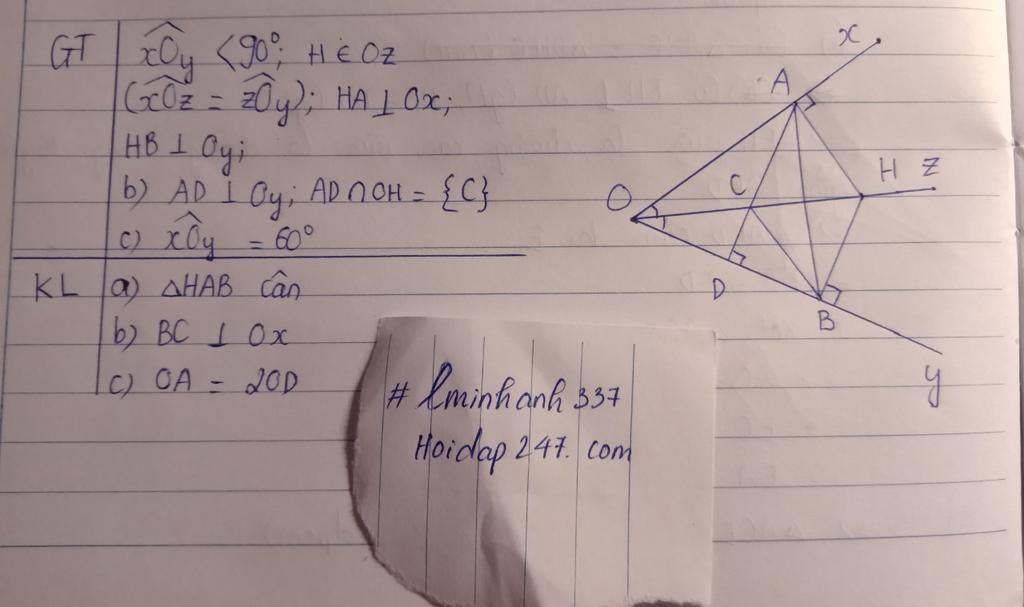 GT
xOy < 90°; H ∈ Oz
(xOz = zOy); HA ⊥ Ox;
HB ⊥ Oy;
b) AD ⊥ Oy; AD ∩ OH = {C}
c) xOy = 60°
KL
a) △HAB cân
b) BC ⊥ Ox
c) OA = 2OD
x
A
H z
C
O
D
B
y
# lminhanh 337
Hoidap 247. com